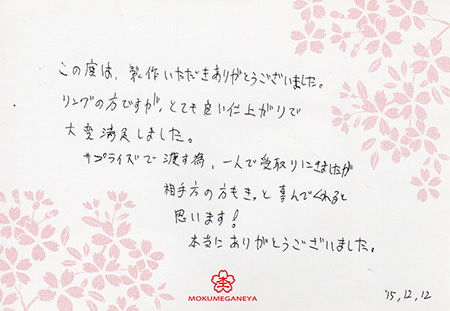 この度は、製作いただきありがとうございました。
リングの方ですが、とても良い仕上がりで
大変満足しました。
サプライズで渡す為、一人で受取りにきましたが
相手方の方もきっと喜んでくれると
思います!
本当にありがとうございました。
MOKUMEGANEYA
'15,12,12